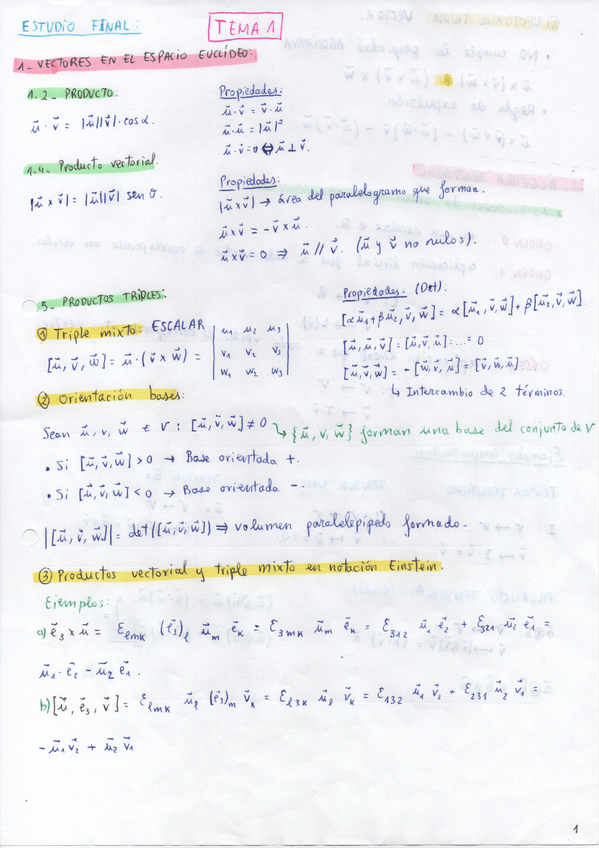 ESTUDIO FINAL:
TEMA 1
1- VECTORES EN EL ESPACIO EUCLÍDEO:
1.2- PRODUCTO:
ū⃗ · v⃗ = |u⃗||v⃗| · cos α.
Propiedades:
u⃗ · v⃗ = v⃗ · u⃗
u⃗ · u⃗ = |u⃗|²
u⃗ · v⃗ = 0 ⇔ u⃗ ⊥ v⃗.
1.4- Producto vectorial.
|u⃗ x v⃗| = |u⃗||v⃗| sen θ.
Propiedades:
|u⃗ x v⃗| → área del paralelogramo que forman.
u⃗ x v⃗ = - v⃗ x u⃗.
u⃗ x v⃗ = 0 ⇒ u⃗ // v⃗. (u⃗ y v⃗ no nulos).
5- PRODUCTOS TRIPLES:
① Triple mixto: ESCALAR
[u⃗, v⃗, w⃗] = u⃗ · (v⃗ x w⃗) =
| u1 u2 u3 |
| v1 v2 v3 |
| w1 w2 w3 |
Propiedades. (Det).
[αu⃗1 + βu⃗2, v⃗, w⃗] = α[u⃗1, v⃗, w⃗] + β[u⃗2, v⃗, w⃗].
[u⃗, u⃗, v⃗] = [u⃗, v⃗, u⃗] = ... = 0
[u⃗, v⃗, w⃗] = - [w⃗, v⃗, u⃗] = [v⃗, w⃗, u⃗]
↳ Intercambio de 2 términos.
② Orientación bases:
Sean u⃗, v, w⃗ ∈ V : [u⃗, v⃗, w⃗] ≠ 0 ↳ {u⃗, v, w⃗} forman una base del conjunto de V
• Si [u⃗, v⃗, w⃗] > 0 → Base orientada +.
• Si [u⃗, v⃗, w⃗] < 0 → Base orientada -.
|[u⃗, v⃗, w⃗]| = det([u⃗, v⃗, w⃗]) ⇒ volumen paralelepípedo formado.
③ Productos vectorial y triple mixto en notación Einstein.
Ejemplos:
a) e⃗3 x u⃗ = εlmk (e⃗3)l u⃗m e⃗k = ε3mk u⃗m e⃗k = ε312 u⃗1 e⃗2 + ε321 u⃗2 e⃗1 =
u⃗1 · e⃗2 - u⃗2 e⃗1.
b) [u⃗, e⃗3, v⃗] = εlmk u⃗l (e⃗3)m v⃗k = εl3k u⃗l v⃗k = ε132 u⃗1 v⃗2 + ε231 u⃗2 v⃗1 =
- u⃗1 v⃗2 + u⃗2 v⃗1
1